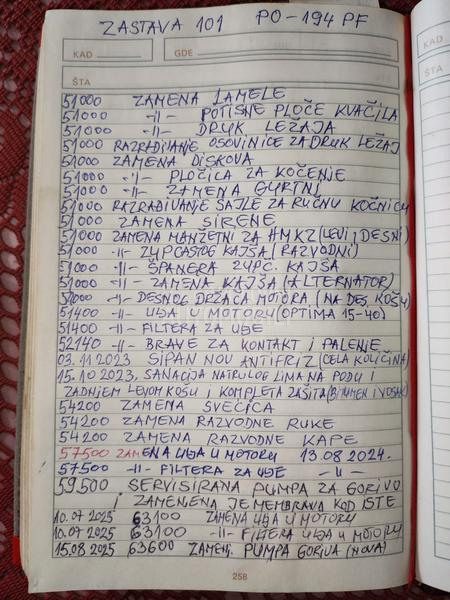 ZASTAVA 101 PO-194 PF
KAD
GDE
KAD
ŠTA
ŠTA
51000 ZAMENA LAMELE
51000 -11- POTISNE PLOČE KVAČILA
51000 -11- DRUK LEŽAJA
51000 RAZRAĐIVANJE OSOVINICE ZA DRUK LEŽAJ
51000 ZAMENA DISKOVA
51000 -11- PLOČICA ZA KOČENJE
51000 -11- ZAMENA GURTNI
51000 RAZRAĐIVANJE SAJLE ZA RUČNU KOČNICU
51000 ZAMENA SIRENE
51000 ZAMENA MANŽETNI ZA HMKZ (LEVI i DESNI)
51000 -11- ZUPČASTOG KAJŠA (RAZVODNI)
51000 -11- ŠPANERA ZUPČ. KAJŠA
51000 -11- ZAMENA KAJŠA (ALTERNATOR)
51000 -11- DESNOG DRŽAČA MOTORA (NA DES. KOŠU)
51400 -11- ULJA U MOTORU (OPTIMA 15-40)
51400 -11- FILTERA ZA ULJE
52140 -11- BRAVE ZA KONTAKT I PALENJE
03.11.2023 SIPAN NOV ANTIFRIZ (CELA KOLIČINA)
15.10.2023, SANACIJA NATRULOG LIMA NA PODU I
ZADNJEM LEVOM KOŠU I KOMPLETA ZAŠITA (BITUMEN I VOSAK)
54200 ZAMENA SVEĆICA
54200 ZAMENA RAZVODNE RUKE
54200 ZAMENA RAZVODNE KAPE
57500 ZAMENA ULJA U MOTORU 13.08.2024.
57500 -11- FILTERA ZA ULJE -11-
59500 SERVISIRANA PUMPA ZA GORIVO
I ZAMENJENA JE MEMBRANA KOD ISTE
10.07.2025 63100 ZAMENA ULJA U MOTORU
10.07.2025 63100 -11- FILTERA ULJA U MOTORU
15.08.2025 63600 ZAMENJ. PUMPA GORIVA (NOVA)
258